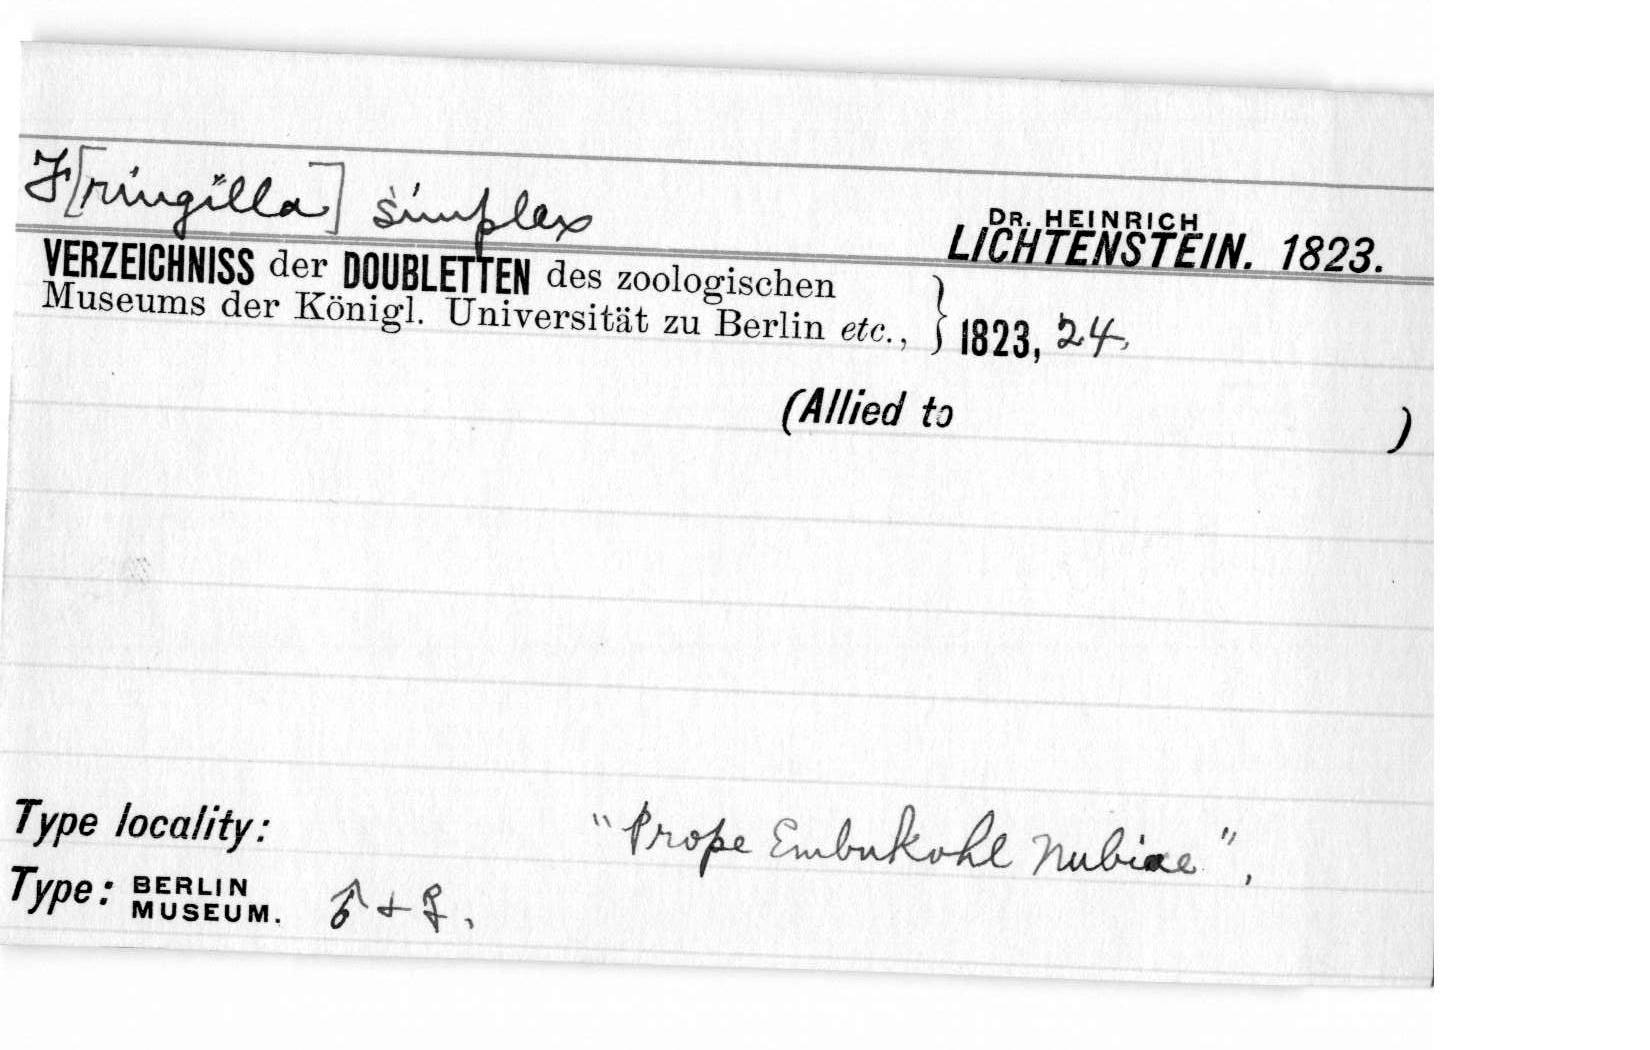 F[ringilla] simplex
DR. HEINRICH
LICHTENSTEIN. 1823.
VERZEICHNISS der DOUBLETTEN des zoologischen
Museums der Königl. Universität zu Berlin etc., } 1823, 24.
(Allied to )
Type locality: "Prope Embukohl Nubiae",
Type: BERLIN
MUSEUM. ♂ + ♀.